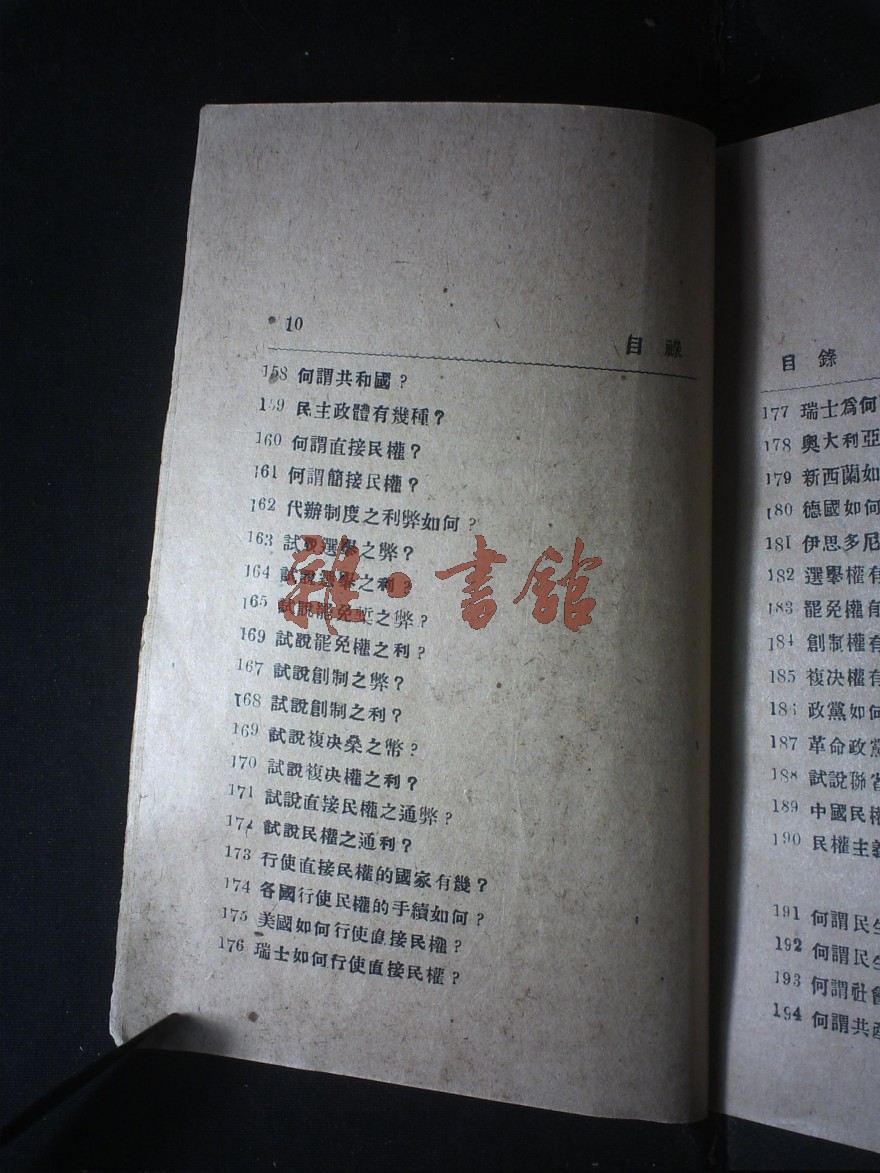 10
目 錄
158 何謂共和國？
159 民主政體有幾種？
160 何謂直接民權？
161 何謂簡接民權？
162 代辦制度之利弊如何？
163 試說選舉之弊？
164 試說選舉之利？
165 試說罷免蹔之弊？
169 試說罷免權之利？
167 試說創制之弊？
168 試說創制之利？
169 試說複决桑之幣？
170 試說複决權之利？
171 試說直接民權之通弊？
172 試說民權之通利？
173 行使直接民權的國家有幾？
174 各國行使民權的手續如何？
175 美國如何行使直接民權？
176 瑞士如何行使直接民權？
雜·書舘
目 錄
177 瑞士爲何
178 奧大利亞
179 新西蘭如
180 德國如何
181 伊思多尼
182 選舉權有
183 罷免權有
184 創制權有
185 複决權有
186 政黨如何
187 革命政黨
188 試說聯省
189 中國民權
190 民權主義
191 何謂民生
192 何謂民生
193 何謂社會
194 何謂共產